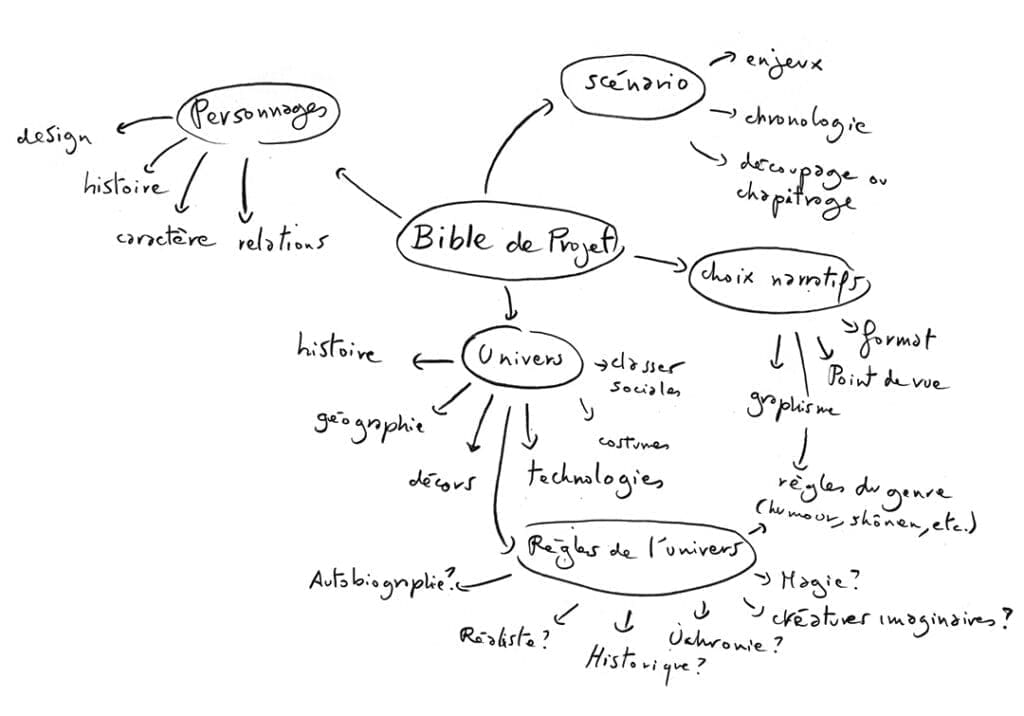 Bible de Projet
Personnages
design
histoire
caractère
relations
scénario
enjeux
chronologie
découpage ou
chapitrage
choix narratifs
format
Point de vue
graphisme
règles du genre
(humour, shônen, etc.)
Univers
histoire
géographie
décors
technologies
costumes
classes
sociales
Règles de l'univers
Autobiographie?
Réaliste?
Historique?
Uchronie?
créatures imaginaires?
Magie?